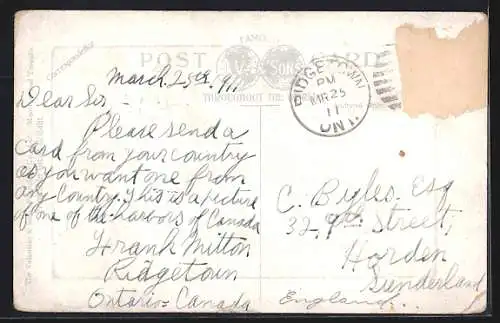 FAMOUS
POST CARD
& SONS
THROUGHOUT THE
Correspondence
RIDGETOWN
PM
MR 25
11
ONT.
March 25th, 911
Dear Sir –
Please send a
card from your country
as you want one from
any Country. This is a picture
of one of the harbors of Canada
Frank Mitton
Ridgetown
Ontario – Canada
C. Byles, Esq
32, 9th Street,
Horden
Sunderland
England.